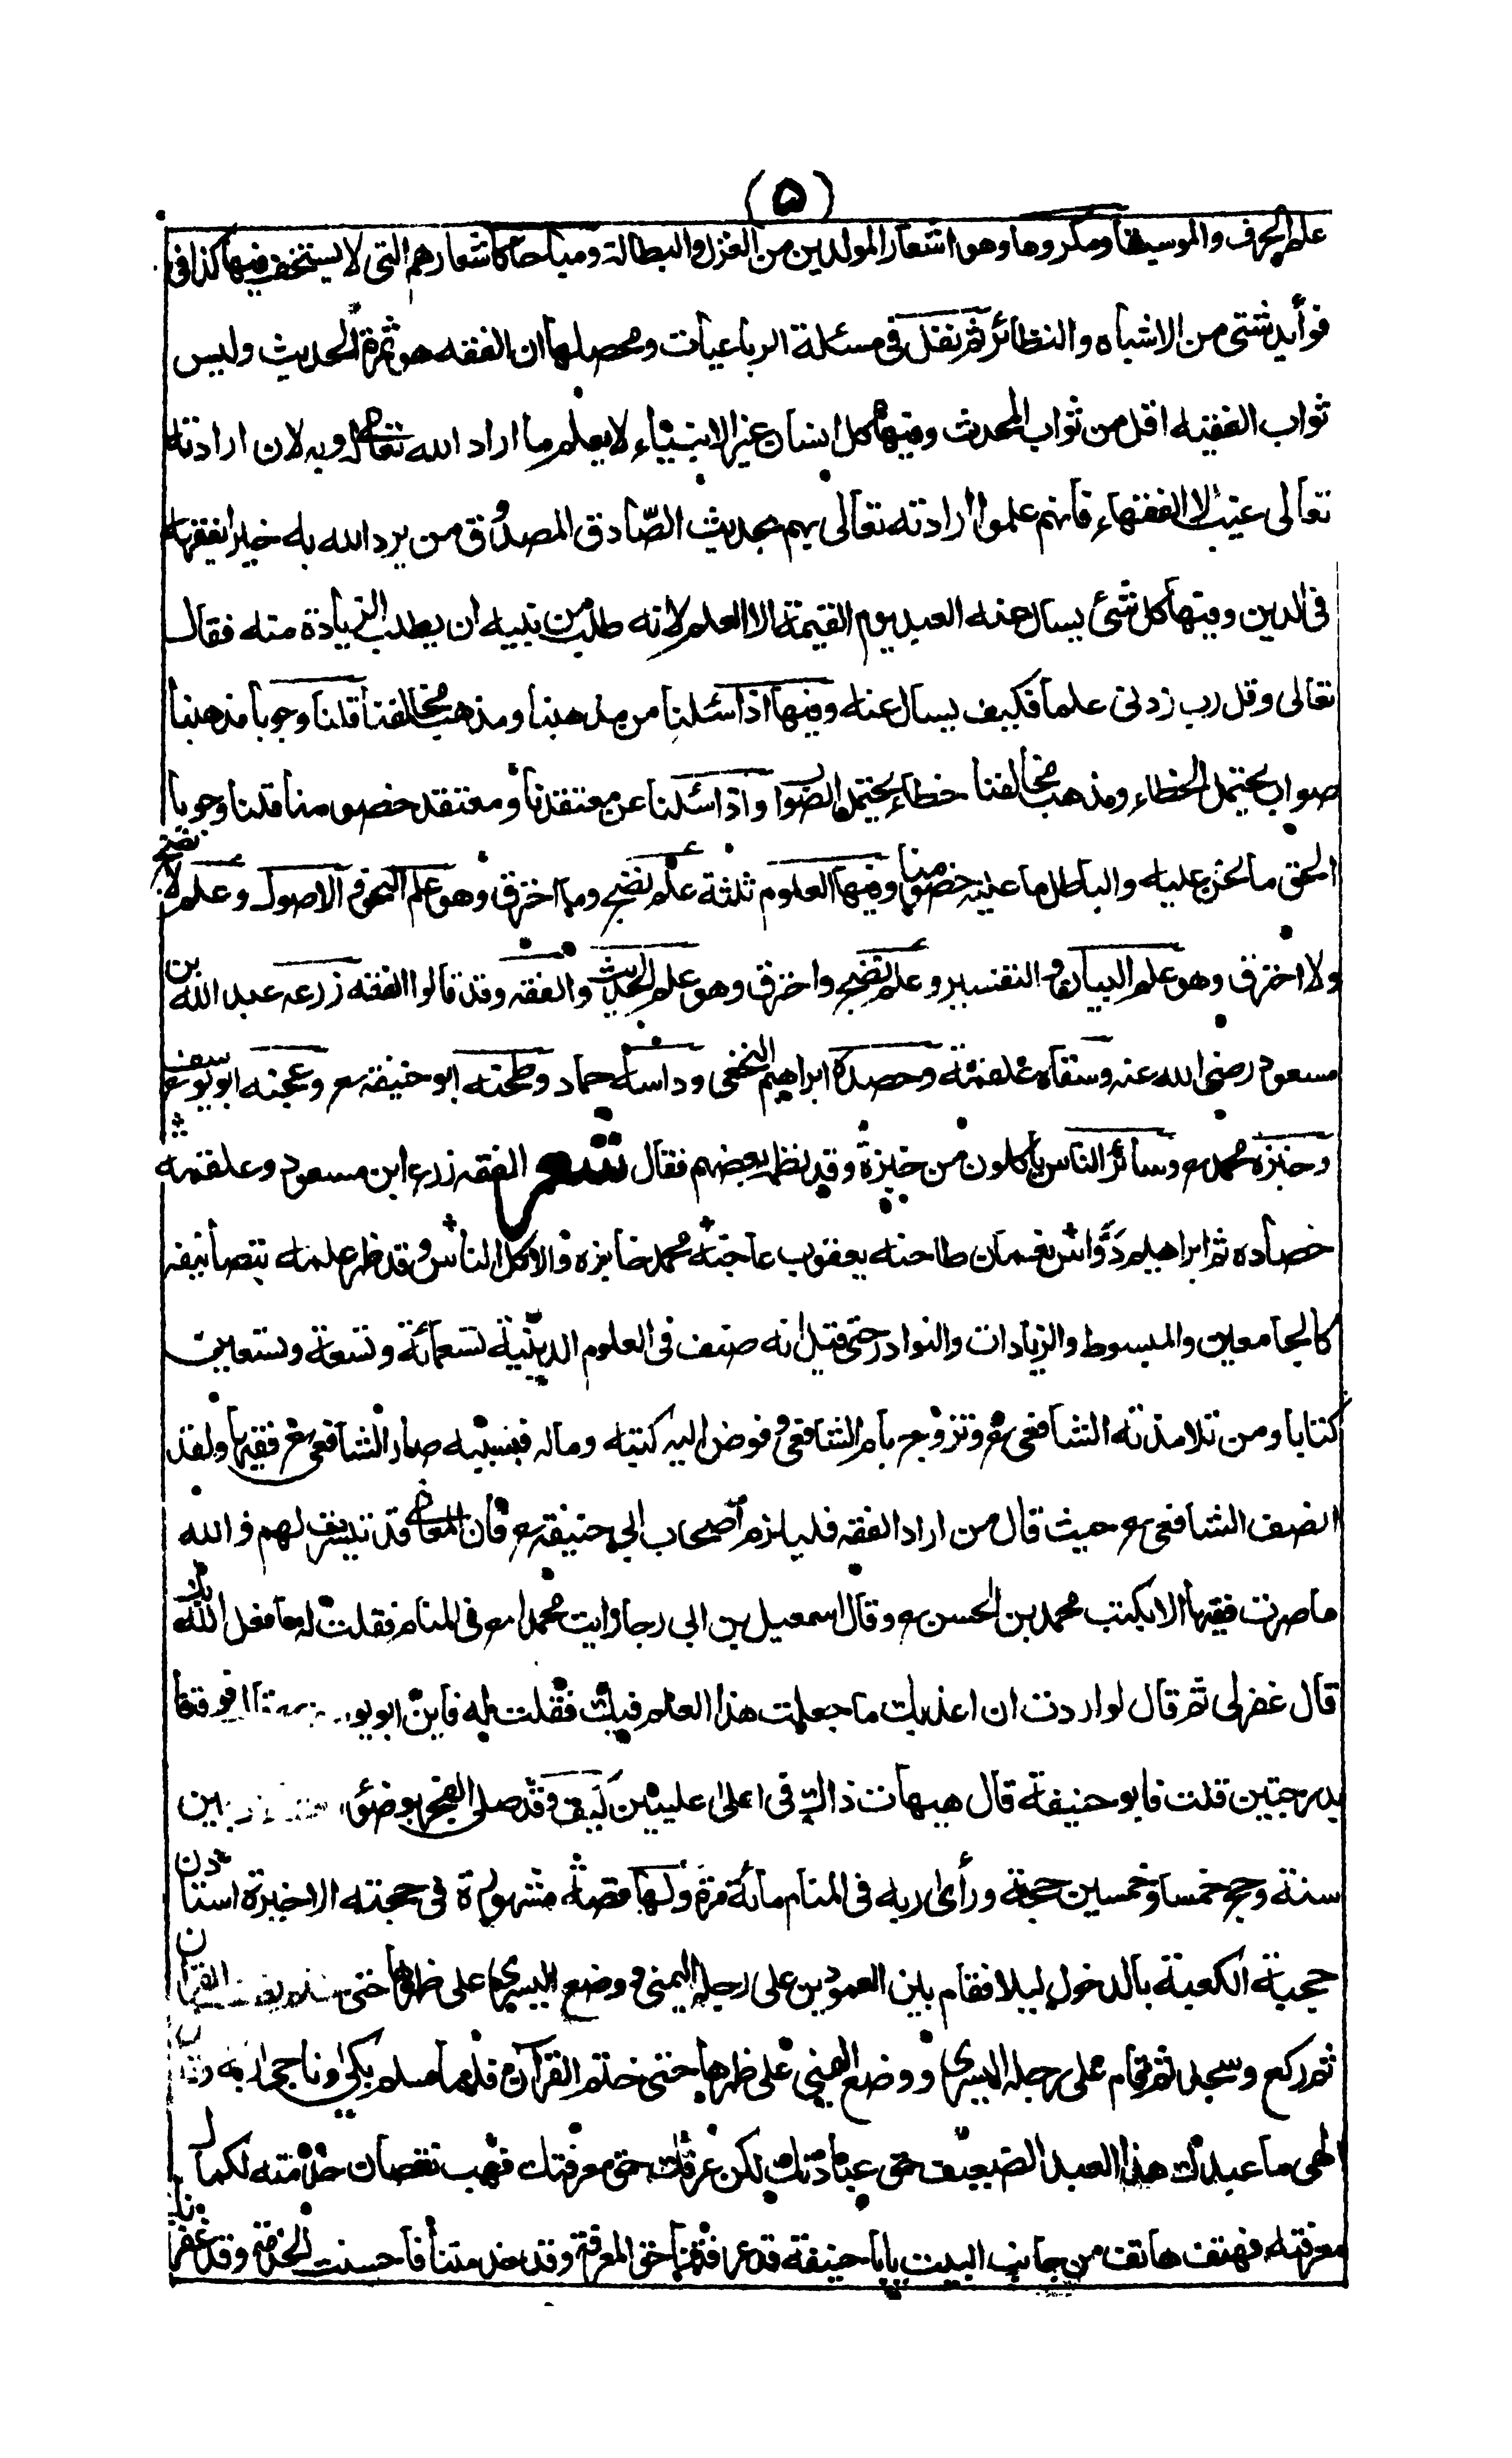 (۵)
علم الحرف والموسيقا ومكروها وهو اشعار المولدين من الغزل والبطالة ومباحا كاشعارهم التى لا يستخف فيها كذا فى
فوأيد شتى من الاشباه والنظائر ثم نقل فى مسئلة الرباعيات ومحصلها ان الفقه هو ثمرة الحديث وليس
ثواب الفقيه اقل من ثواب المحدث وفيها كل انسان غير الانبياء لا يعلم ما اراد الله تعالى له وبه لان ارادته
تعالى غيب الا الفقهاء فانهم علموا ارادته تعالى بهم بحديث الصّادق المصدوق من يرد الله به خيرا يفقهه
فى الدين وفيها كل شئ يسال عنه العبد يوم القيمة الا العلم لانه طلب من نبيه ان يطلب الزيادة منه فقال
تعالى وقل رب زدنى علما فكيف يسال عنه وفيها اذا سئلنا من مذهبنا ومذهب مخالفنا قلنا وجوبا مذهبنا
صواب يحتمل الخطاء ومذهب مخالفنا خطاء يحتمل الصواب واذا سئلنا عن معتقدنا ومعتقد خصومنا قلنا وجوبا
الحق ما نحن عليه والباطل ما عليه خصومنا وفيها العلوم ثلثة علم نضج وما احترق وهو علم النحو والاصول وعلم لا نضج
ولا احترق وهو علم البيان والتفسير وعلم نضج واحترق وهو علم الحديث والفقه وقد قالوا الفقه زرعه عبد الله بن
مسعود رضى الله عنه وسقاه علقمة وحصده ابراهيم النخعى وداسه حماد وطحنه ابو حنيفة رح وعجنه ابو يوسف رح
وخبزه محمد رح وسائر الناس ياكلون من خبزة وقد نظم بعضهم فقال شعر الفقه زرع ابن مسعود وعلقمة
حصاده ثم ابراهيم دَوَّاس نعمان طاحنه يعقوب عاجنه محمد خابزه والاكل الناس وقد ظهر علمه بتصانيفه
كالجامعين والمبسوط والزيادات والنوادر حتى قيل انه صنف فى العلوم الدينية تسعمائة وتسعة وتسعين
كتابا ومن تلامذته الشافعى رح وتزوج بام الشافعى وفوض اليه كتبه وماله فبسببه صار الشافعى رح فقيها ولقد
انصف الشافعى رح حيث قال من اراد الفقه فليلزم اصحاب ابى حنيفة رح فان المعانى قد تيسرت لهم والله
ما صرت فقيها الا بكتب محمد بن الحسن رح وقال اسمعيل بن ابى رجا رايت محمدا رح فى المنام فقلت له ما فعل الله بك
قال غفر لى ثم قال لو اردت ان اعذبك ما جعلت هذا العلم فيك فقلت له فاين ابو يو فوقنا
بدرجتين قلت فابو حنيفة قال هيهات ذاك فى اعلى عليين كيف وقد صلى الفجر بوضوء بين
سنة وحج خمسا وخمسين حجة ورأى ربه فى المنام مائة مرة ولها قصة مشهورة فى حجته الاخيرة استاذن
حجبة الكعبة بالدخول ليلا فقام بين العمودين على رجله اليمنى ووضع اليسرى على ظهرها حتى القرآن
ثم ركع وسجد ثم قام على رجله اليسرى ووضع اليمنى على ظهرها حتى ختم القرآن فلما سلم بكى وناجى ربه
الهى ما عبدك هذا العبد الضعيف حق عبادتك لكن عرفك حق معرفتك فهب نقصان خدمته لكمال
معرفته فهتف هاتف من جانب البيت يا ابا حنيفة قد عرفتنا حق المعرفة وقد خدمتنا فاحسنت الخدمة وقد غفرنا